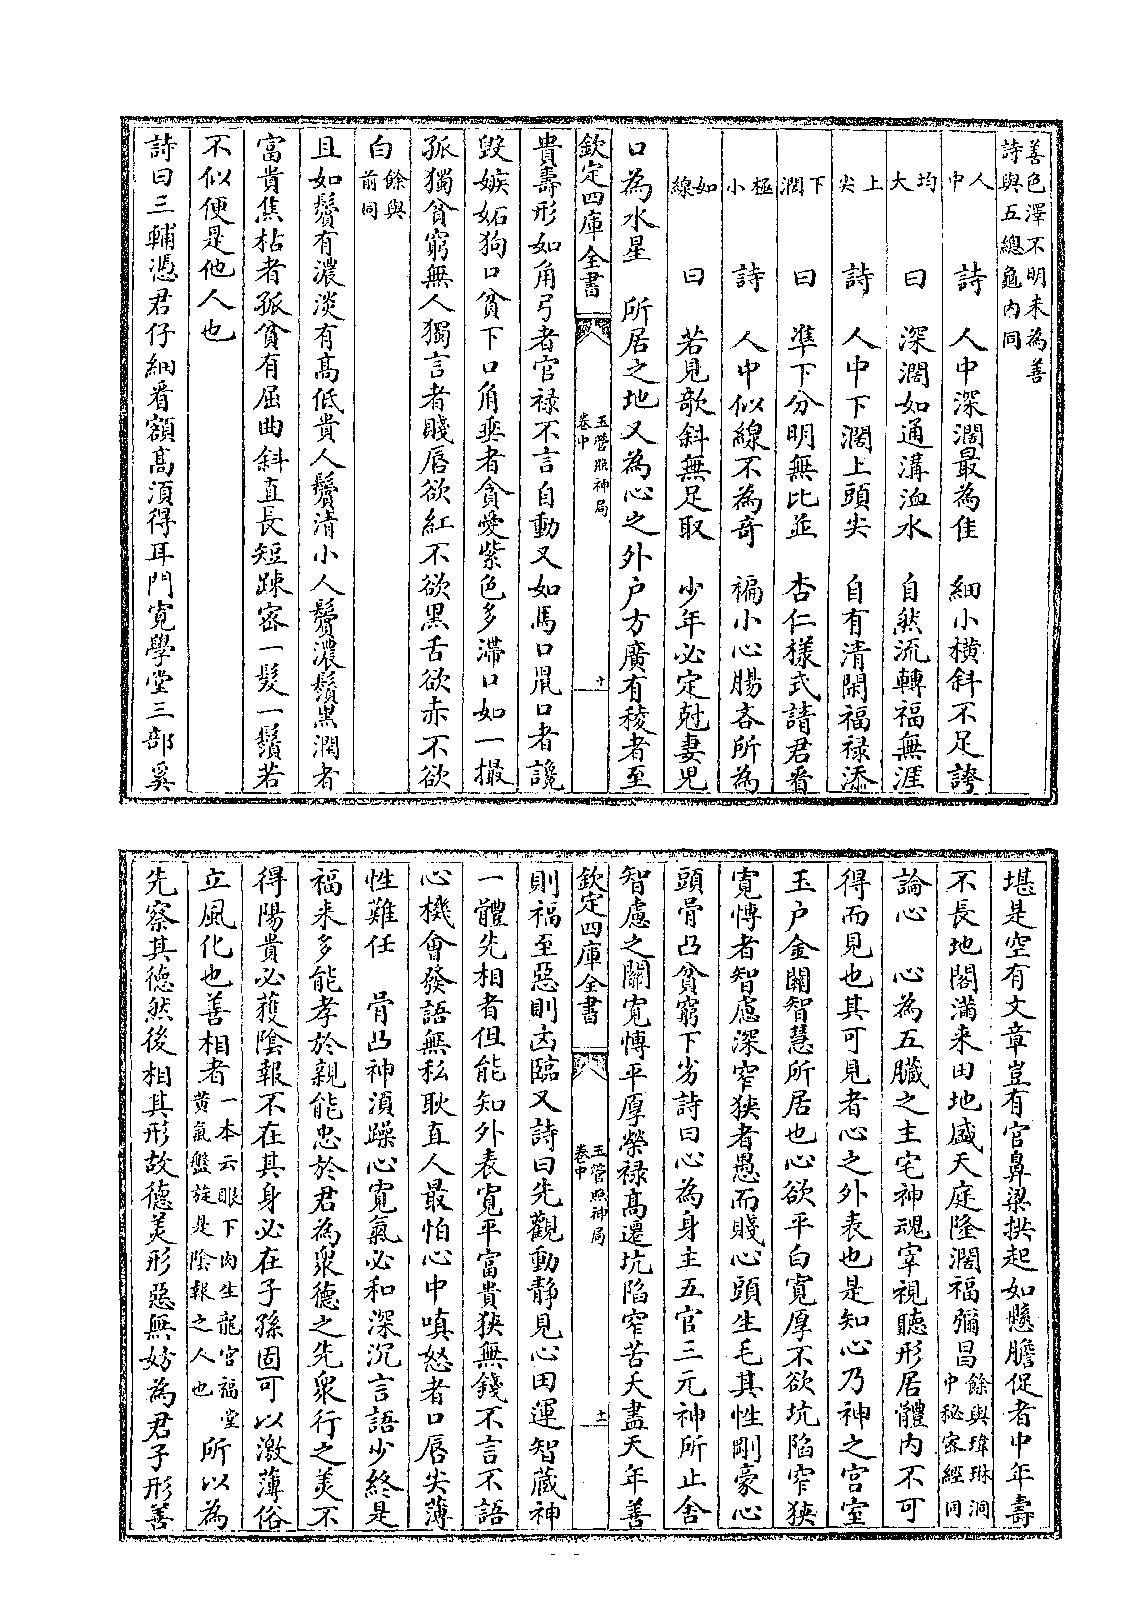 善色澤不明未為善
詩與五總龜内同
人中　詩　人中深濶最為佳　細小横斜不足誇
均大　曰　深濶如通溝洫水　自然流轉福無涯
上尖　詩　人中下濶上頭尖　自有清閑福禄添
下濶　曰　準下分明無比並　杏仁樣式請君看
極小　詩　人中似線不為奇　褊小心腸吝所為
如線　曰　若見欹斜無足取　少年必定尅妻兒
口為水星　所居之地又為心之外户方廣有稜者至
欽定四庫全書　玉管照神局　卷中　十
貴壽形如角弓者官禄不言自動又如馬口鼠口者讒
毁嫉妬狗口貧下口角垂者貪愛紫色多滯口如一撮
孤獨貧窮無人獨言者賤唇欲紅不欲黒舌欲赤不欲
白餘與前同
且如鬢有濃淡有髙低貴人鬢清小人鬢濃鬚黒潤者
富貴焦枯者孤貧有屈曲斜直長短踈宻一髮一鬚若
不似便是他人也
詩曰三輔憑君仔細㸔額髙湏得耳門寛學堂三部奚
堪是空有文章豈有官鼻梁拱起如懸膽促者中年壽
不長地閣滿来田地盛天庭隆濶福彌昌餘與瑋琳洞中秘家經同
論心　心為五臟之主宅神魂宰視聽形居體内不可
得而見也其可見者心之外表也是知心乃神之宫室
玉户金闗智慧所居也心欲平白寛厚不欲坑陷窄狭
寛愽者智慮深窄狭者愚而賤心頭生毛其性剛豪心
頭骨凸貧窮下劣詩曰心為身主五官三元神所止舍
智慮之關寛愽平厚榮禄髙遷坑陷窄苦夭盡天年善
欽定四庫全書　玉管照神局　卷中　十一
則福至惡則凶臨又詩曰先觀動静見心田運智藏神
一體先相者但能知外表寛平富貴狭無錢不言不語
心機會發語無私耿直人最怕心中嗔怒者口唇尖薄
性難任　骨凸神湏躁心寛氣必和深沉言語少終是
福来多能孝於親能忠於君為衆德之先衆行之美不
得陽貴必獲隂報不在其身必在子孫固可以激薄俗
立風化也善相者一本云眼下肉生龍宫福堂黄氣盤旋是隂報之人也所以為
先察其德然後相其形故德美形惡無妨為君子形善